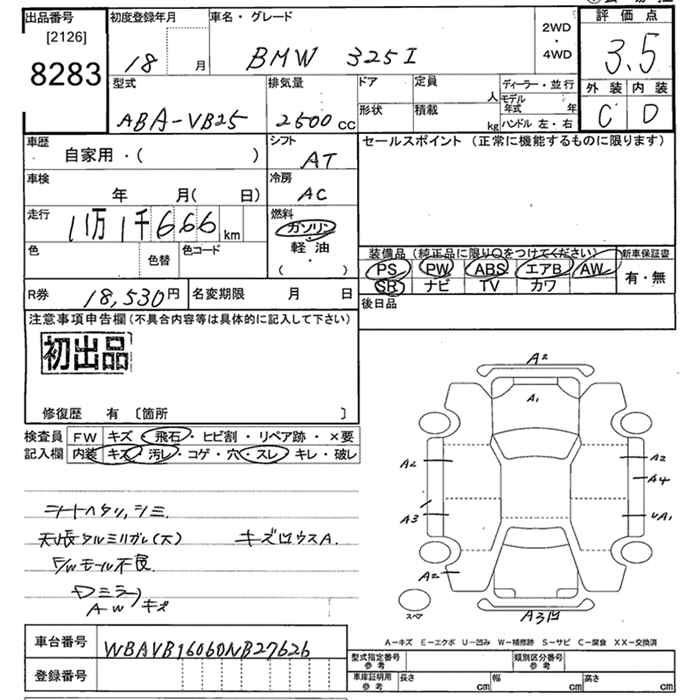 出品番号 初度登録年月 車名・グレード 評価点
[2126] 2WD
8283 18 月 BMW 325I ・ 3.5
4WD
型式 排気量 ドア 定員 ディーラー・並行 外装 内装
人 モデル年式 年
ABA-VB25 2500 CC 形状 積載 kg ハンドル 左・右 C D
車歴 シフト セールスポイント (正常に機能するものに限ります)
自家用・( ) AT
車検 冷房
年 月( 日) AC
走行 燃料
11万1千666 km ガソリン
色 色替 色コード 軽油 装備品 (純正品に限り○をつけてください) 新車保証書
( ・ ) PS PW ABS エアB AW 有・無
R券 18,530円 名変期限 月 日 SR ナビ TV カワ
後日品
注意事項申告欄(不具合内容等は具体的に記入して下さい)
初出品
修復歴 有 〔箇所 〕
検査員 FW キズ・飛石・ヒビ割・リペア跡・×要
記入欄 内装 キズ・汚レ・コゲ・穴・スレ・キレ・破レ
A2
A1
A2 A2
A4
A3 UA1
A2
スペア A3凹
シートヘタリ,シミ
天張タルミリガレ(大) キズ凹ウスA.
F/Wモール不良
Dミラー
AW キズ
A-キズ E-エクボ U-凹み W-補修跡 S-サビ C-腐食 XX-交換済
車台番号 WBAVB16060NB27626
型式指定番号 参考 類別区分番号 参考
登録番号 車庫証明用 参考 長さ cm 幅 cm 高さ cm